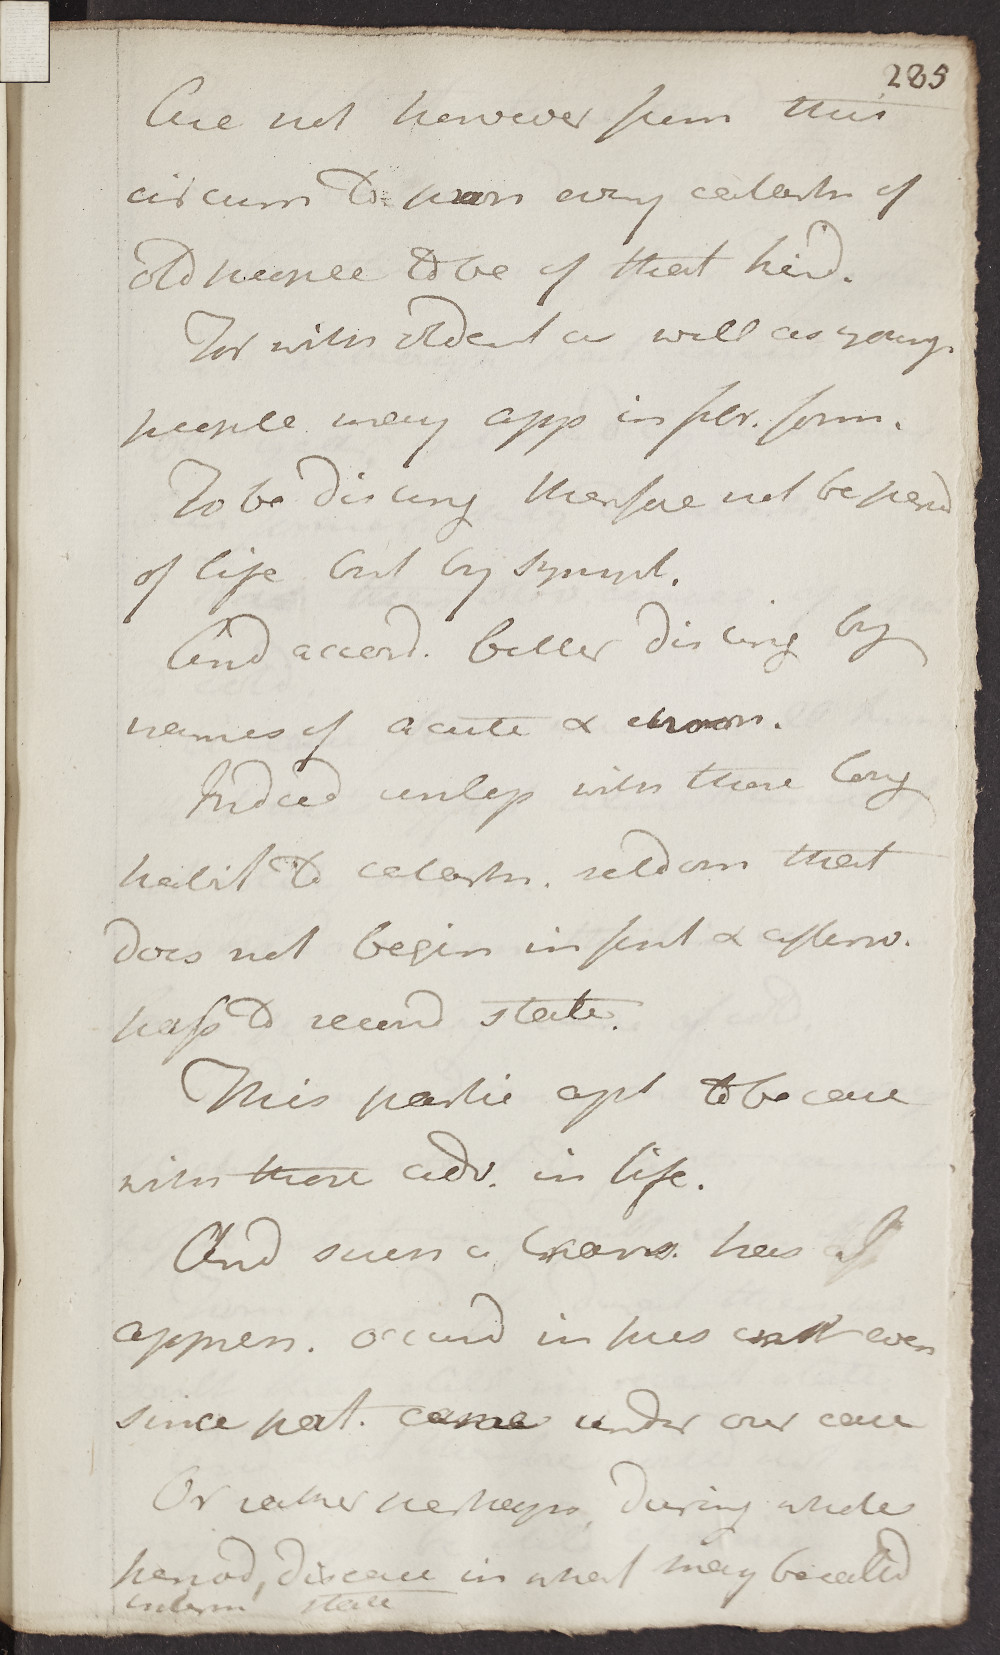 285
Are not however from this
circum to pron every catarrh of
old people to be of that kind.
For with old and as well as young
people may app in for. form.
To be disting therefore not be period
of life but by sympt.
And accord. better disting by
names of acute & chron.
Indeed unless with those long
habit to catarrh. seldom that
does not begin in first & afterw.
pass to second state.
This partic apt to be case
with those adv. in life.
And such a trans. has I
appreh. occurd in pres even
since pat. came under our care
Or rather perhaps, during whole
period, disease in what may be calld
interm state